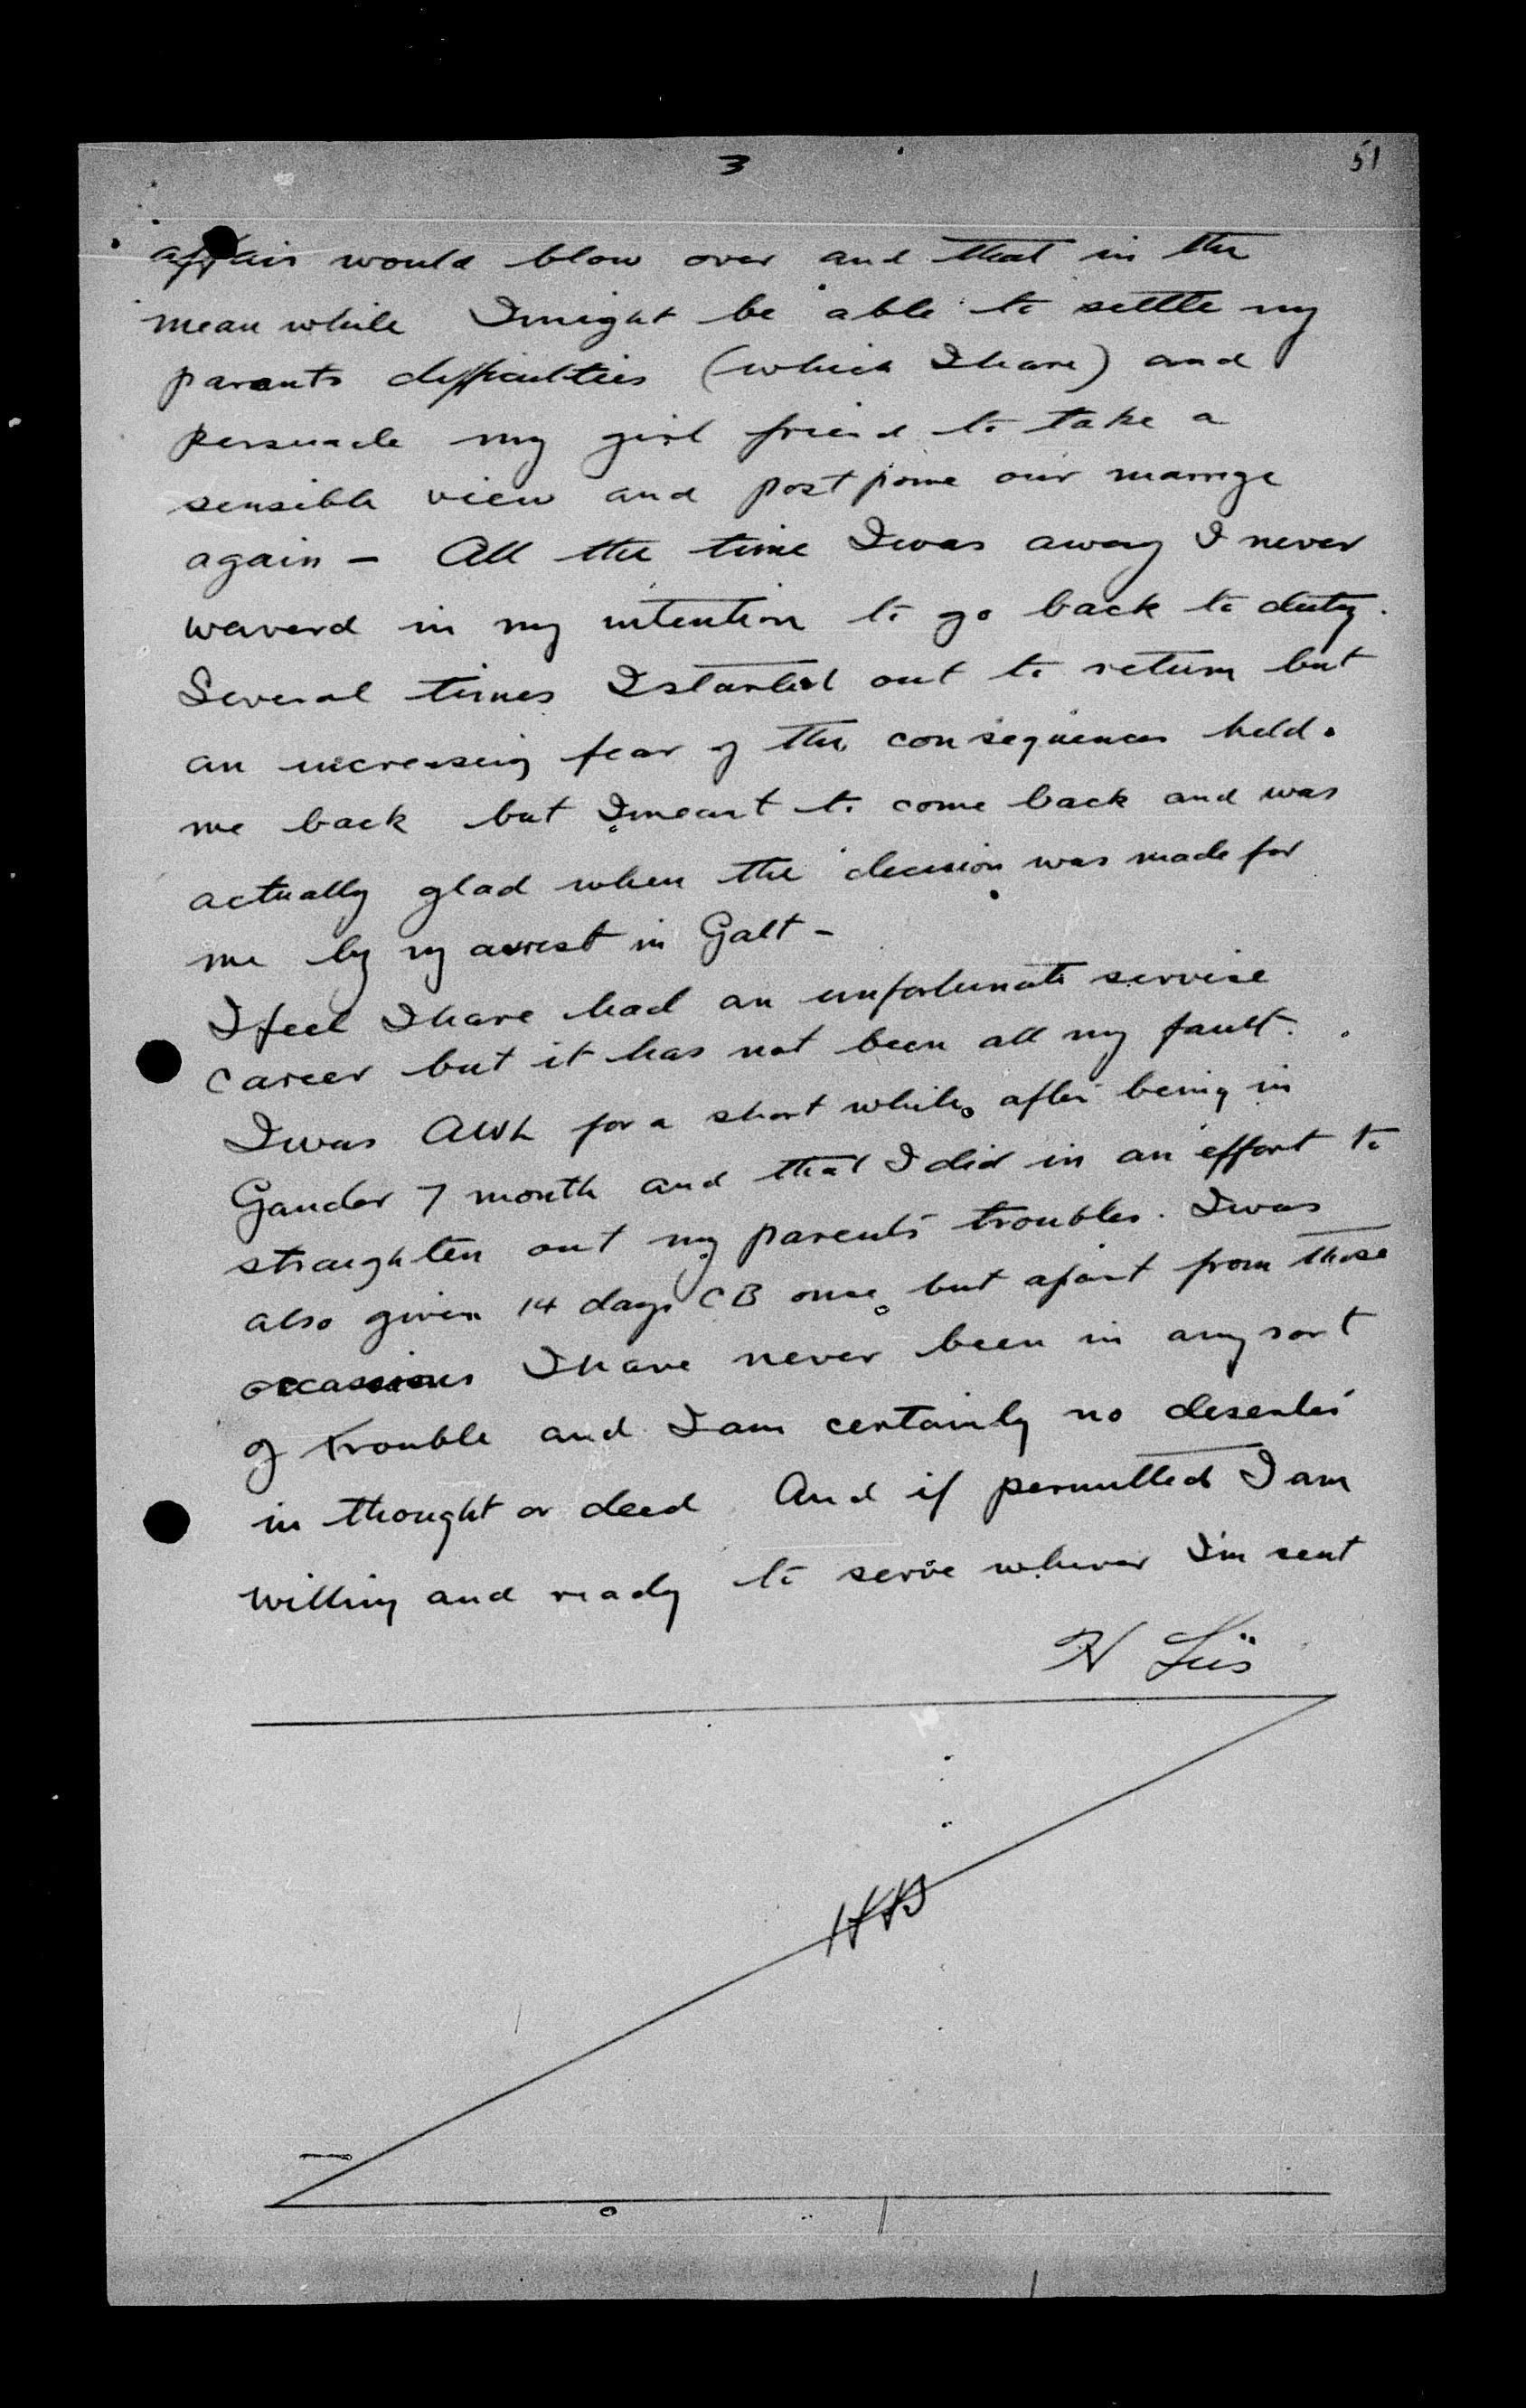 3
51
affair would blow over and that in the
mean while I might be able to settle my
parants difficulties (which I share) and
persuade my girl friend to take a
sensible view and post pone our marrige
again - All the time I was away I never
waverd in my intention to go back to duty.
Several times I started out to return but
an increasing fear of the consequences held
me back but I meant to come back and was
actually glad when the decision was made for
me by my arrest in Galt -
I feel I have had an unfortunate servise
career but it has not been all my fault.
I was AWL for a short while after being in
Gander 7 month and that I did in an effort to
straighten out my parents troubles. I was
also given 14 days CB once but apart from those
occassions I have never been in any sort
of trouble and I am certainly no deserter
in thought or deed And if permitted I am
willing and ready to serve wherever I'm sent
H